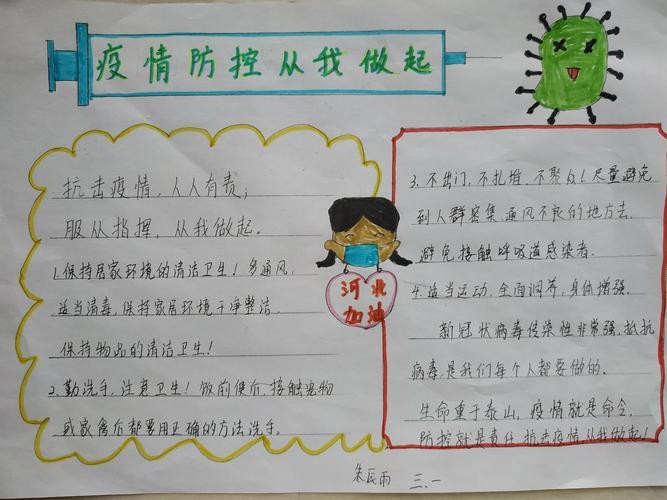 疫情防控从我做起
抗击疫情,人人有责;
服从指挥,从我做起.
1.保持居家环境的清洁卫生!多通风,
适当消毒,保持家居环境干净整洁.
保持物品的清洁卫生!
2.勤洗手,注意卫生!饭前便后,接触宠物
或家禽后都要用正确的方法洗手.
河北
加油
3.不出门,不扎堆,不聚众!尽量避免
到人群密集通风不良的地方去.
避免接触呼吸道感染者.
4.适当运动,全面调养,身体增强.
新冠状病毒传染性非常强,抵抗
病毒,是我们每个人都要做的.
生命重于泰山,疫情就是命令,
防控就是责任,抗击疫情从我做起!
三.一